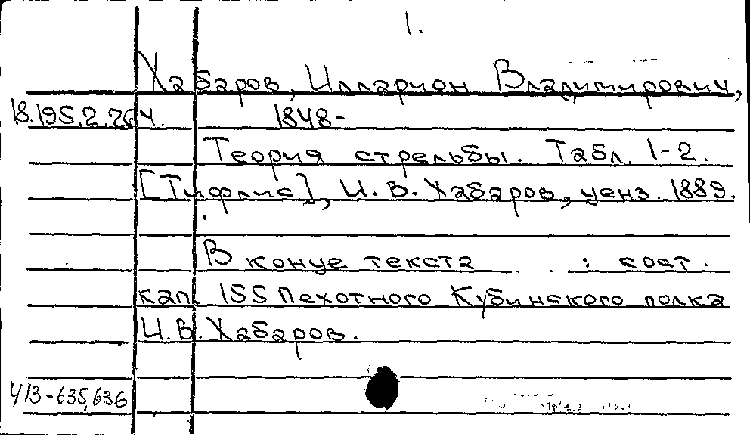 1.
Хабаров, Илларион Владимирович,
18.195.2.264. 1848-
Теория стрельбы. Табл. 1-2.
[Тифлис], И. В. Хабаров, ценз. 1889.
В конце текста : сост.
кап. 155 Пехотного Кубинского полка
И. В. Хабаров.
У13-635,636